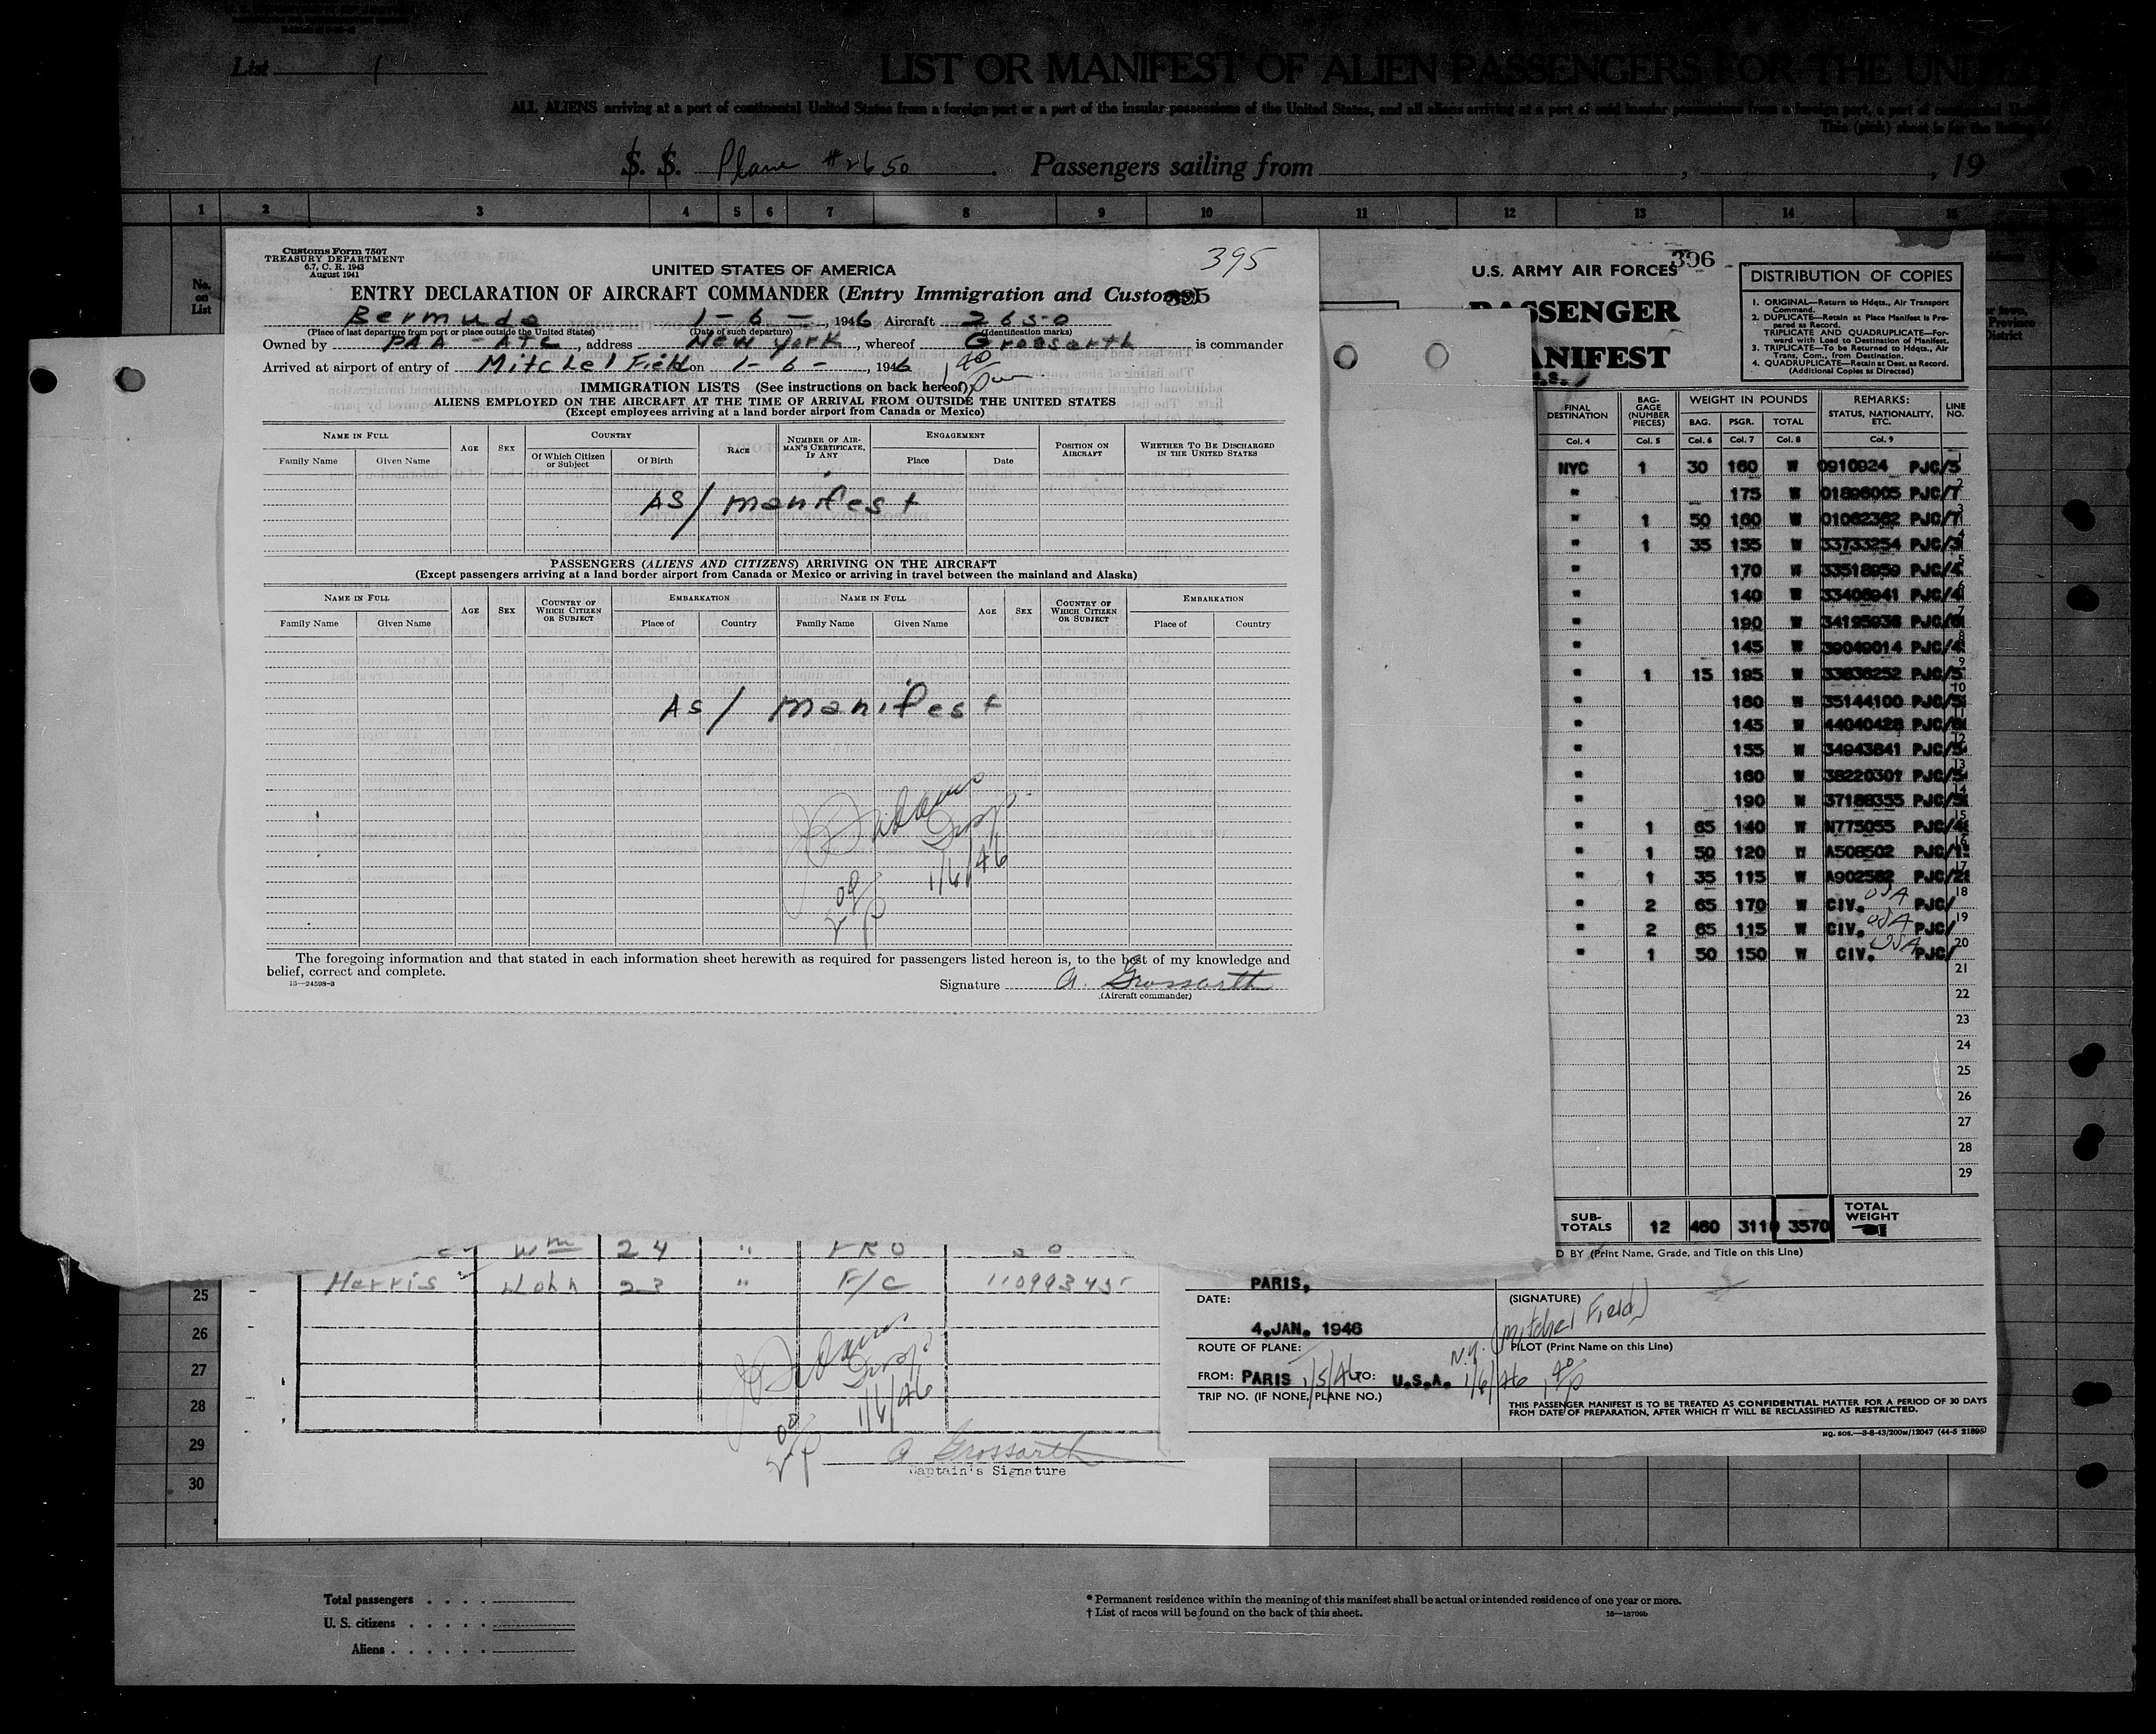 List 1
LIST OR MANIFEST OF ALIEN PASSENGERS FOR THE UNITED
ALL ALIENS arriving at a port of continental United States from a foreign port or a port of the insular possessions of the United States, and all aliens arriving at a port of said insular possessions from a foreign port, a port of continental United
This (pink) sheet is for the
S. S. Plane #2650 . Passengers sailing from , , 19
1 2 3 4 5 6 7 8 9 10 11 12 13 14 15
No. on List
Customs Form 7507
TREASURY DEPARTMENT
6.7, C. R. 1943
August 1941
395
UNITED STATES OF AMERICA
ENTRY DECLARATION OF AIRCRAFT COMMANDER (Entry Immigration and Customs)
Bermuda 1-6-, 1946 Aircraft 2650
(Place of last departure from port or place outside the United States) (Date of such departure) (Identification marks)
Owned by PAA - ATC, address New York, whereof Grossarth is commander
Arrived at airport of entry of Mitchel Field on 1-6-, 1946
IMMIGRATION LISTS (See instructions on back hereof)
ALIENS EMPLOYED ON THE AIRCRAFT AT THE TIME OF ARRIVAL FROM OUTSIDE THE UNITED STATES
(Except employees arriving at a land border airport from Canada or Mexico)
NAME IN FULL AGE SEX COUNTRY RACE NUMBER OF AIRMAN'S CERTIFICATE, IF ANY ENGAGEMENT POSITION ON AIRCRAFT WHETHER TO BE DISCHARGED IN THE UNITED STATES
Family Name Given Name Of Which Citizen or Subject Of Birth Place Date
AS/ manifest
PASSENGERS (ALIENS AND CITIZENS) ARRIVING ON THE AIRCRAFT
(Except passengers arriving at a land border airport from Canada or Mexico or arriving in travel between the mainland and Alaska)
NAME IN FULL AGE SEX COUNTRY OF WHICH CITIZEN OR SUBJECT EMBARKATION NAME IN FULL AGE SEX COUNTRY OF WHICH CITIZEN OR SUBJECT EMBARKATION
Family Name Given Name Place of Country Family Name Given Name Place of Country
AS/ manifest
1/6/46
The foregoing information and that stated in each information sheet herewith as required for passengers listed hereon is, to the best of my knowledge and
belief, correct and complete.
16—24598-3
Signature A. Grossarth
(Aircraft commander)
396
U.S. ARMY AIR FORCES
PASSENGER
MANIFEST
DISTRIBUTION OF COPIES
1. ORIGINAL—Return to Hdqts., Air Transport
Command.
2. DUPLICATE—Retain at Place Manifest is Pre-
pared as Record.
TRIPLICATE AND QUADRUPLICATE—For-
ward with Load to Destination of Manifest.
3. TRIPLICATE—To be Returned to Hdqts., Air
Trans. Com., from Destination.
4. QUADRUPLICATE—Retain at Dest. as Record.
(Additional Copies as Directed)
FINAL DESTINATION BAGGAGE (NUMBER PIECES) WEIGHT IN POUNDS REMARKS: STATUS, NATIONALITY, ETC. LINE NO.
BAG. PSGR. TOTAL
Col. 4 Col. 5 Col. 6 Col. 7 Col. 8 Col. 9
NYC 1 30 160 W 0910924 PJC/5 1
" 175 W 01896005 PJC/7 2
" 1 50 160 W 01062362 PJC/7 3
" 1 35 155 W 33733254 PJC/3 4
" 170 W 33518959 PJC/4 5
" 140 W 33406941 PJC/4 6
" 190 W 34195936 PJC/6 7
" 145 W 39049014 PJC/4 8
" 1 15 195 W 33836252 PJC/5 9
" 160 W 35144100 PJC/5 10
" 145 W 44040428 PJC/6 11
" 155 W 34943841 PJC/5 12
" 160 W 38220301 PJC/5 13
" 190 W 37188355 PJC/5 14
" 1 65 140 W N775055 PJC/4 15
" 1 50 120 W A508502 PJC/1 16
" 1 35 115 W A902582 PJC/2 17
" 2 65 170 W CIV. USA PJC/ 18
" 2 65 115 W CIV. USA PJC/ 19
" 1 50 150 W CIV. USA PJC/ 20
21
22
23
24
25
26
27
28
29
SUB-TOTALS 12 460 3110 3570 TOTAL WEIGHT
D BY (Print Name, Grade, and Title on this Line)
PARIS,
DATE: (SIGNATURE)
4.JAN. 1946
N.Y. (Mitchel Field)
ROUTE OF PLANE: PILOT (Print Name on this Line)
FROM: PARIS 1/5/46 TO: U.S.A. 1/6/46
TRIP NO. (IF NONE, PLANE NO.)
THIS PASSENGER MANIFEST IS TO BE TREATED AS CONFIDENTIAL MATTER FOR A PERIOD OF 30 DAYS
FROM DATE OF PREPARATION, AFTER WHICH IT WILL BE RECLASSIFIED AS RESTRICTED.
HQ. SOS.—3-8-43/200M/12047 (44-5 21895)
Wm 24 "
Harris John 23 " F/C
25
26
27
28
29
30
1/6/46
A Grossarth
Captain's Signature
Total passengers . . . .
U. S. citizens . . . . .
Aliens . . . . . .
* Permanent residence within the meaning of this manifest shall be actual or intended residence of one year or more.
† List of races will be found on the back of this sheet.
16—18709b